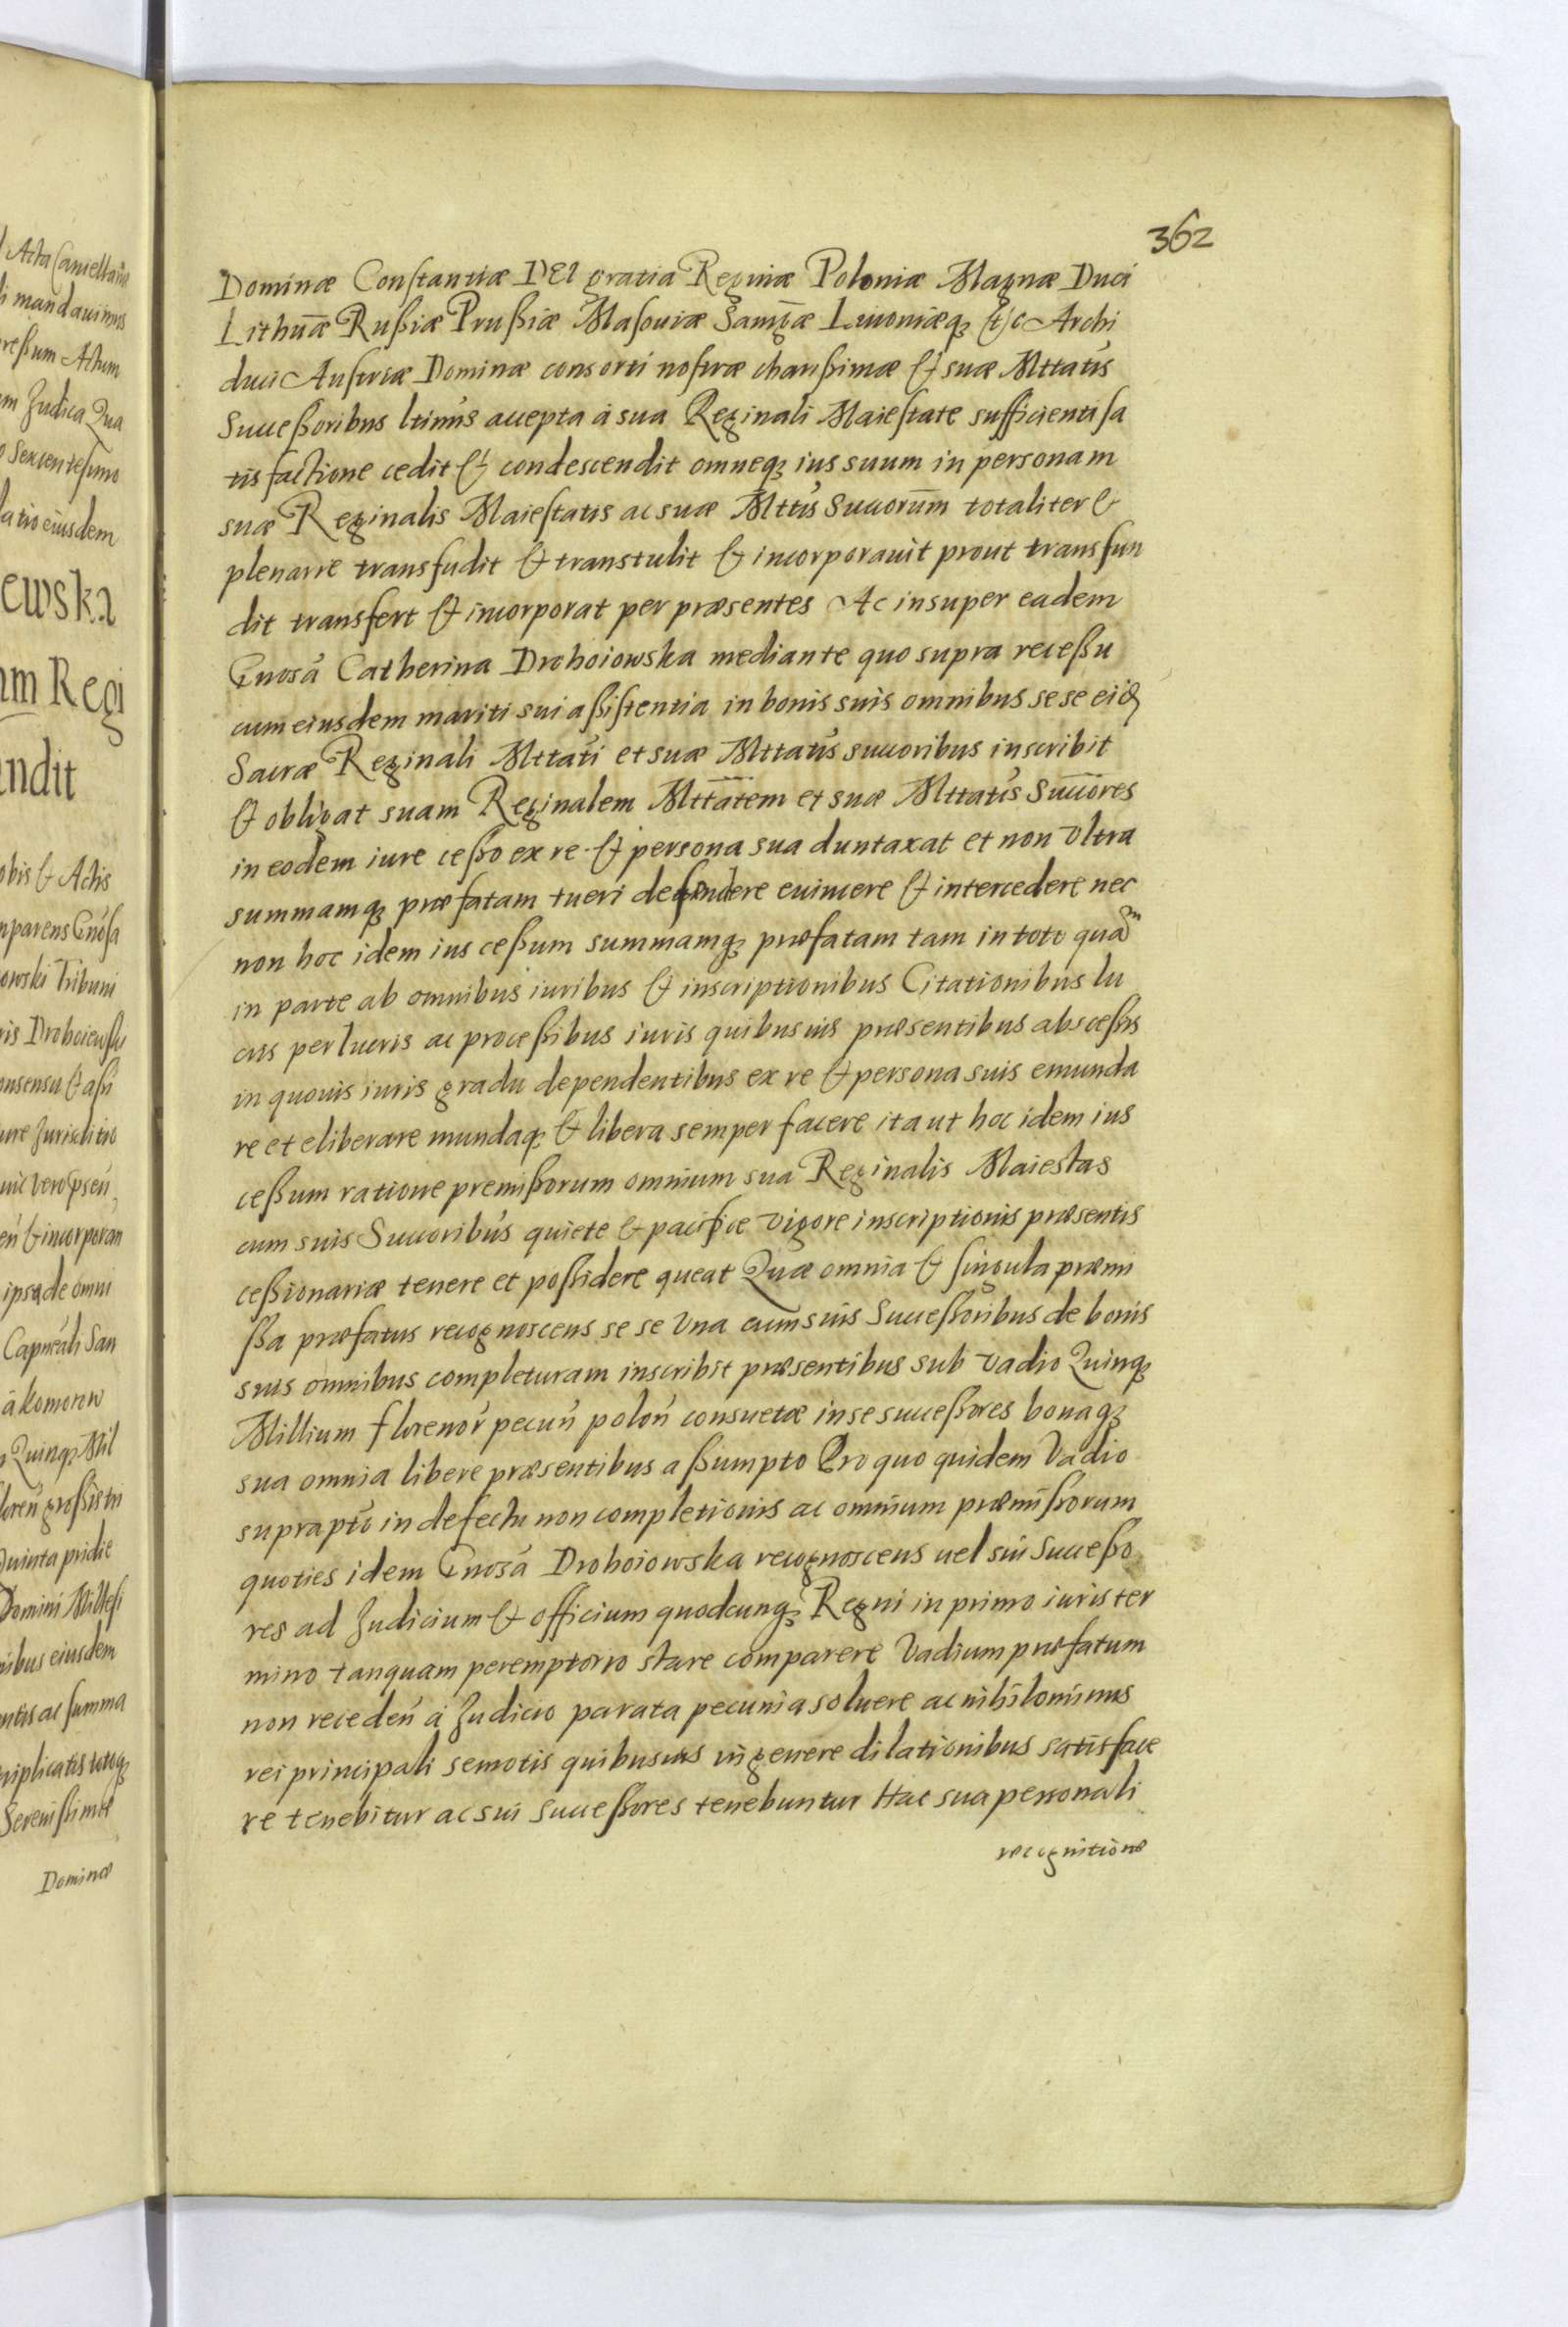 362
Dominæ Constantiæ DEI gratia Reginæ Poloniæ Magnæ Duci
Lithuæ Rußiæ Prußiæ Masouiæ Samgæ Liuoniæq₃ &c Archi
duci Austriæ Dominæ consorti nostræ charißimæ & suæ Mttatis
Succeßoribus ltimis accepta à sua Reginali Maiestate sufficienti sa
tisfactione cedit & condescendit omneq₃ ius suum in personam
suæ Reginalis Maiestatis ac suæ Mttis Succorum totaliter &
plenarie transfudit & transtulit & incorporauit prout transfun
dit transfert & incorporat per præsentes Ac insuper eadem
Gnosa Catherina Drohoiowska mediante quo supra receßu
cum eiusdem mariti sui aßistentia in bonis suis omnibus sese eid
Sacræ Reginali Mttati et suæ Mttatis succoribus inscribit
& obligat suam Reginalem Mttatem et suæ Mttatis Succores
in eodem iure ceßo ex re & persona sua duntaxat et non vltra
summamq₃ præfatam tueri defendere euincere & intercedere nec
non hoc idem ius ceßum summamq₃ præfatam tam in toto quam
in parte ab omnibus iuribus & inscriptionibus Citationibus lu
cris perlucris ac proceßibus iuris quibusuis præsentibus absceßis
in quouis iuris gradu dependentibus ex re & persona suis emunda
re et eliberare mundaq₃ & libera semper facere ita ut hoc idem ius
ceßum ratione premißorum omnium sua Reginalis Maiestas
cum suis Succoribus quiete & pacifice vigore inscriptionis præsentis
ceßionariæ tenere et poßidere queat Quæ omnia & singula præmi
ßa præfatus recognoscens se se vna cum suis Succeßoribus de bonis
suis omnibus completuram inscribit præsentibus sub vadio Quinq₃
Millium florenor pecun polon consuetæ in se succeßores bonaq₃
sua omnia libere præsentibus aßumpto Pro quo quidem Vadio
suprapto in defectu non completionis ac omnium præmißorum
quoties idem Gnosa Drohoiowska recognoscens uel sui Succeßo
res ad Judicium & officium quodcunq₃ Regni in primo iuris ter
mino tanquam peremptorio stare comparere Vadium præfatum
non receden à Judicio parata pecunia soluere ac nihilominus
rei principali semotis quibusuis in genere dilationibus satisface
re tenebitur ac sui succeßores tenebuntur Hac sua personali
recognitione